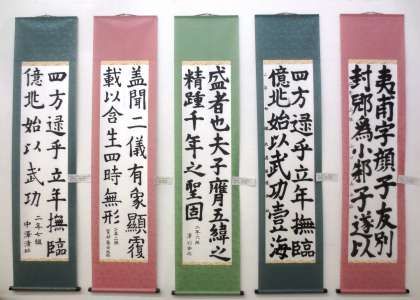 夷甫字顔子友別
封郳為小邾子遂以
四方逯乎立年撫臨
億兆始以武功壹海
盛者也夫子膺五緯之
精踵千年之聖固
盖聞二儀有象顯覆
載以含生四時無形
四方逯乎立年撫臨
億兆始以武功
二年七組
中澤清